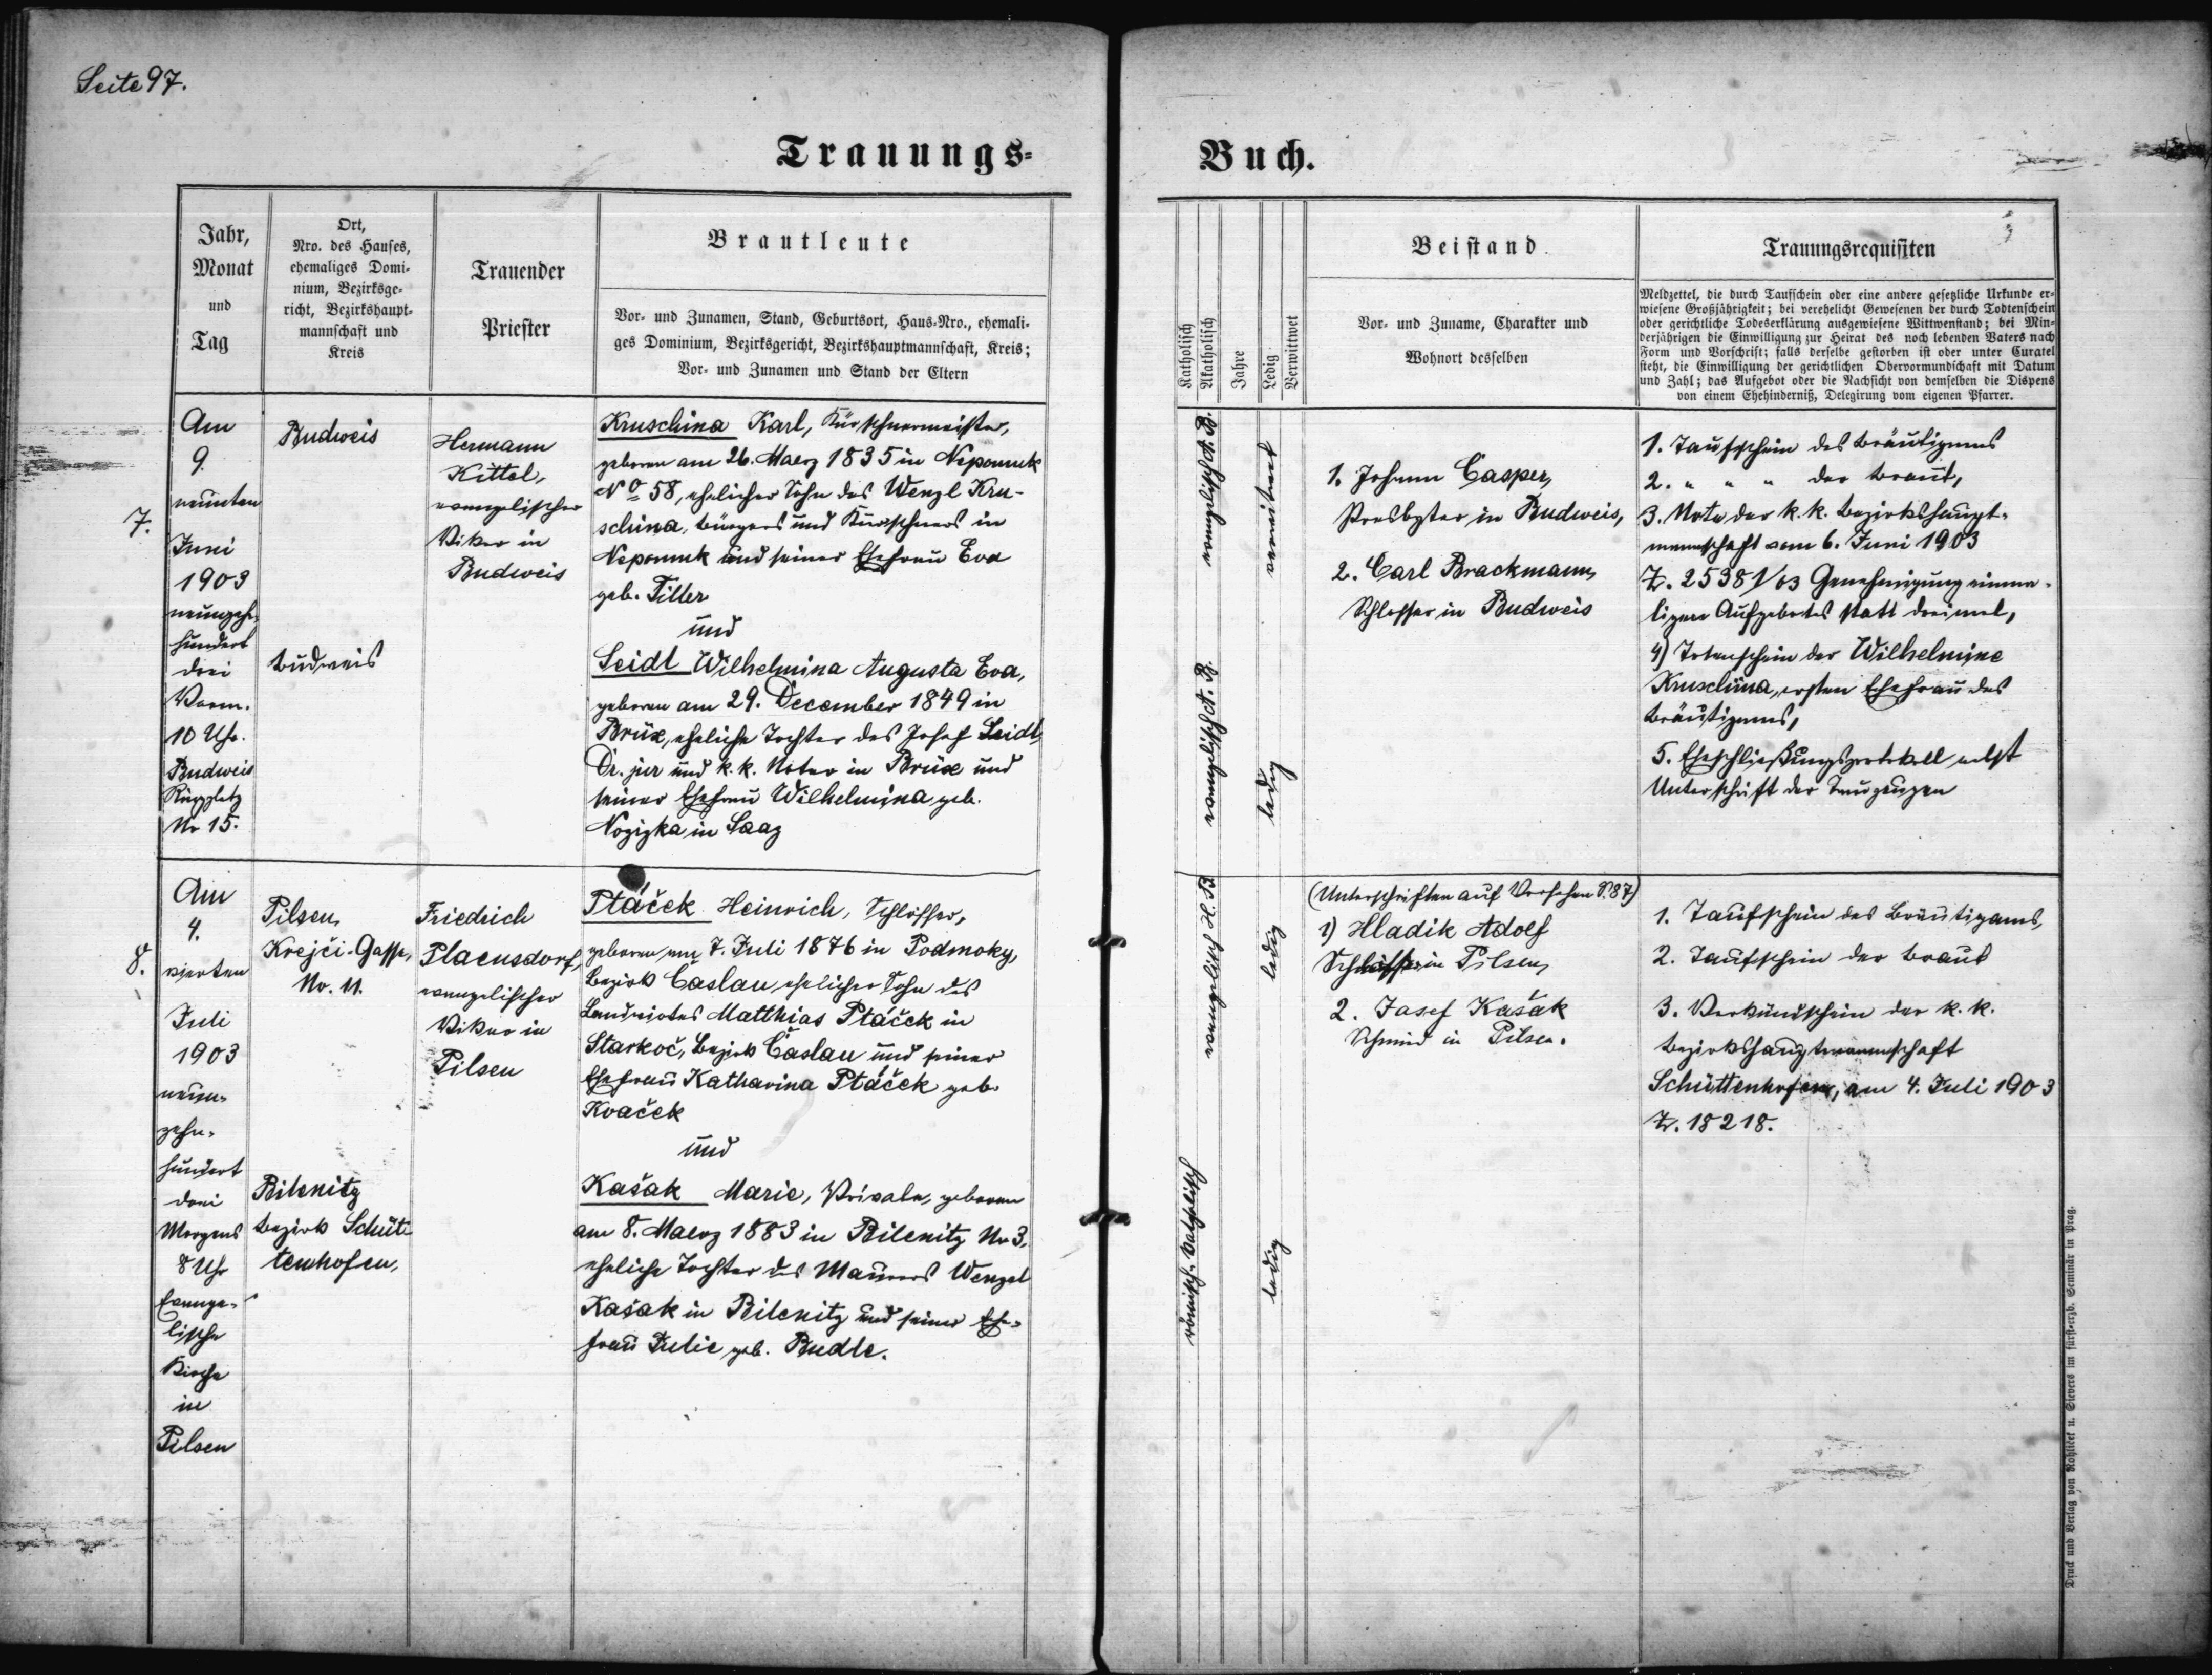 Seite 97.
Trauungs-
Buch.
Jahr,
Monat
und
Tag
Ort,
Nro. des Hauses,
ehemaliges Domi-
nium, Bezirksge-
richt, Bezirkshaupt-
mannschaft und
Kreis
Trauender
Priester
Brautleute
Vor- und Zunamen, Stand, Geburtsort, Haus-Nro., ehemali-
ges Dominium, Bezirksgericht, Bezirkshauptmannschaft, Kreis;
Vor- und Zunamen und Stand der Eltern
Katholisch
Akatholisch
Jahre
Ledig
Verwittwet
Beistand
Vor- und Zuname, Charakter und
Wohnort desselben
Trauungsrequisiten
Meldzettel, die durch Taufschein oder eine andere gesetzliche Urkunde er-
wiesene Großjährigkeit; bei verehelicht Gewesenen der durch Todtenschein
oder gerichtliche Todeserklärung ausgewiesene Wittwenstand; bei Min-
derjährigen die Einwilligung zur Heirat des noch lebenden Vaters nach
Form und Vorschrift; falls derselbe gestorben ist oder unter Curatel
steht, die Einwilligung der gerichtlichen Obervormundschaft mit Datum
und Zahl; das Aufgebot oder die Nachsicht von demselben die Dispens
von einem Ehehinderniß, Delegirung vom eigenen Pfarrer.
7.
Am
9.
neunten
Juni
1903
neunzehn-
hundert
drei
Vorm.
10 Uhr.
Budweis
Ringplatz
Nr 15.
Budweis
Budweis
Hermann
Kittel,
evangelischer
Vikar in
Budweis
Kruschina Karl, Kürschnermeister,
geboren am 26. Maerz 1835 in Nepomuk
No 58, ehelicher Sohn des Wenzl Kru-
schina, Bürgers und Kürschners in
Nepomuk und seiner Ehefrau Eva
geb. Tiller
und
Seidl Wilhelmina Augusta Eva,
geboren am 29. December 1849 in
Brüx, eheliche Tochter des Josef Seidl,
Dr. jur und k. k. Notar in Brüx und
seiner Ehefrau Wilhelmina geb.
Nozizka in Saaz
evangelisch A. B.
verwitwet
evangelisch A. B.
ledig
1. Johann Casper,
Presbyter in Budweis,
2. Carl Brackmann,
Schlosser in Budweis
1. Taufschein des Bräutigams
2. " " " der Braut,
3. Note der k. k. Bezirkshaupt-
mannschaft vom 6. Juni 1903
Z. 25381/03 Genehmigung einma-
ligen Aufgebotes statt dreimal,
4) Totenschein der Wilhelmine
Kruschina, ersten Ehefrau des
Bräutigams,
5. Eheschließungsprotokoll nebst
Unterschrift der Trauzeugen
8.
Am
4.
vierten
Juli
1903
neun-
zehn-
hundert
drei
Morgens
8 Uhr
Evange-
lische
Kirche
in
Pilsen
Pilsen,
Krejči-Gasse,
Nr. 11.
Bilenitz
Bezirk Schüt-
tenhofen,
Friedrich
Plaensdorf,
evangelischer
Vikar in
Pilsen
Ptáček Heinrich, Schlosser,
geboren am 7. Juli 1876 in Podmoky,
Bezirk Caslau ehelicher Sohn des
Landwirtes Matthias Ptáček in
Starkoč, Bezirk Časlau und seiner
Ehefrau Katharina Ptáček geb.
Kvaček
und
Kašak Marie, Private, geboren
am 8. Maerz 1883 in Bilenitz Nr 3,
eheliche Tochter des Maurers Wenzel
Kašak in Bilenitz und seiner Ehe-
frau Julie geb. Budle.
evangelisch H. B.
ledig
römisch-katholisch
ledig
(Unterschriften auf Versehen S. 87)
1) Hladik Adolf
Schlosser in Pilsen,
2. Josef Kašak
Schmied in Pilsen.
1. Taufschein des Bräutigams,
2. Taufschein der Braut
3. Verkündschein der k. k.
Bezirkshauptmannschaft
Schüttenhofen, am 4. Juli 1903
Z. 18218.
Druck und Verlag von Rohliček u. Sievers im fürst-erzb. Seminär in Prag.